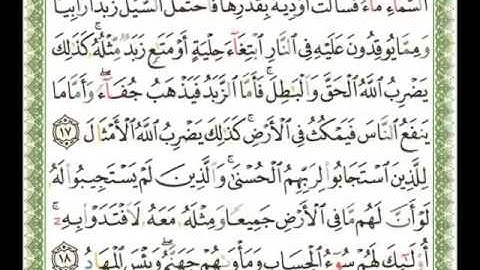 ٱلسَّمَآءِ مَآءً فَسَالَتۡ أَوۡدِيَةُۢ بِقَدَرِهَا فَٱحۡتَمَلَ ٱلسَّيۡلُ زَبَدٗا رَّابِيٗا
وَمِمَّا يُوقِدُونَ عَلَيۡهِ فِي ٱلنَّارِ ٱبۡتِغَآءَ حِلۡيَةٍ أَوۡ مَتَٰعٖ زَبَدٞ مِّثۡلُهُۥۚ كَذَٰلِكَ
يَضۡرِبُ ٱللَّهُ ٱلۡحَقَّ وَٱلۡبَٰطِلَۚ فَأَمَّا ٱلزَّبَدُ فَيَذۡهَبُ جُفَآءٗۖ وَأَمَّا مَا
يَنفَعُ ٱلنَّاسَ فَيَمۡكُثُ فِي ٱلۡأَرۡضِۚ كَذَٰلِكَ يَضۡرِبُ ٱللَّهُ ٱلۡأَمۡثَالَ ١٧
لِلَّذِينَ ٱسۡتَجَابُواْ لِرَبِّهِمُ ٱلۡحُسۡنَىٰۚ وَٱلَّذِينَ لَمۡ يَسۡتَجِيبُواْ لَهُۥ
لَوۡ أَنَّ لَهُم مَّا فِي ٱلۡأَرۡضِ جَمِيعٗا وَمِثۡلَهُۥ مَعَهُۥ لَٱفۡتَدَوۡاْ بِهِۦٓۚ
أُوْلَٰٓئِكَ لَهُمۡ سُوٓءُ ٱلۡحِسَابِ وَمَأۡوَىٰهُمۡ جَهَنَّمُۖ وَبِئۡسَ ٱلۡمِهَادُ ١٨